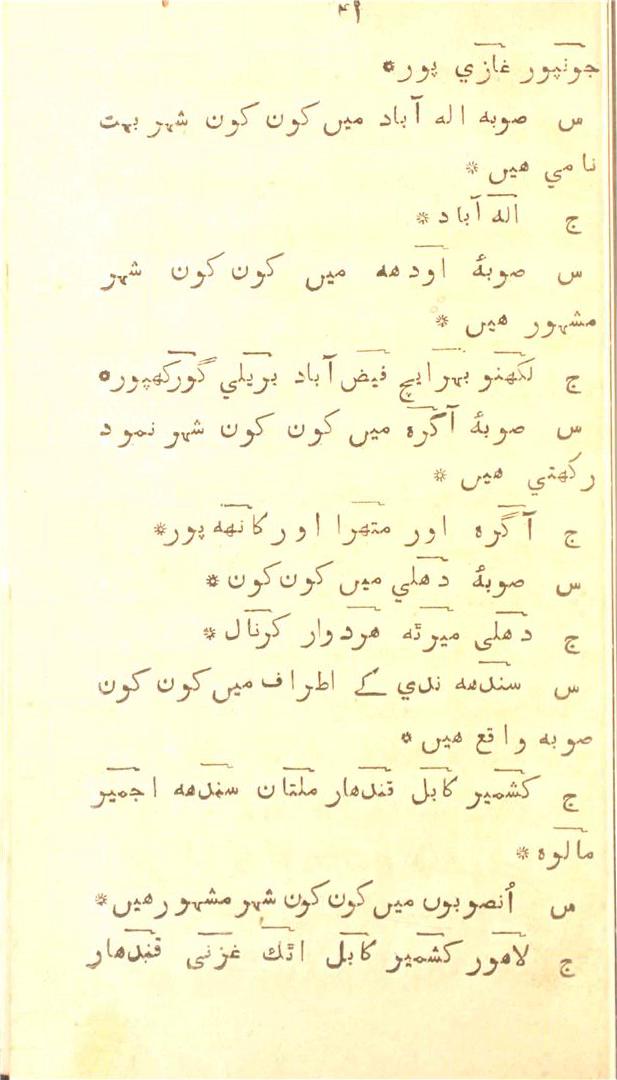 ۴۹
جونپور غازي پور*
س صوبه اله آباد میں کون کون شہر بہت
نامي هیں *
ج اله آباد *
س صوبۂ اودهه میں کون کون شہر
مشہور هیں *
ج لکھنو بہرایچ فیض آباد بریلي گورکھپور*
س صوبۂ آگره میں کون کون شہر نمود
رکھتي هیں *
ج آگره اور متھرا اور کانھه پور*
س صوبۂ دهلي میں کون کون *
ج دهلی میرٹه هردوار کرنال *
س سندهه ندي کے اطراف میں کون کون
صوبه واقع هیں *
ج کشمیر کابل قندهار ملتان سندهه اجمیر
مالوه *
س اُنصوبوں میں کون کون شہر مشہور هیں*
ج لاهور کشمیر کابل اٹك غزنی قندهار